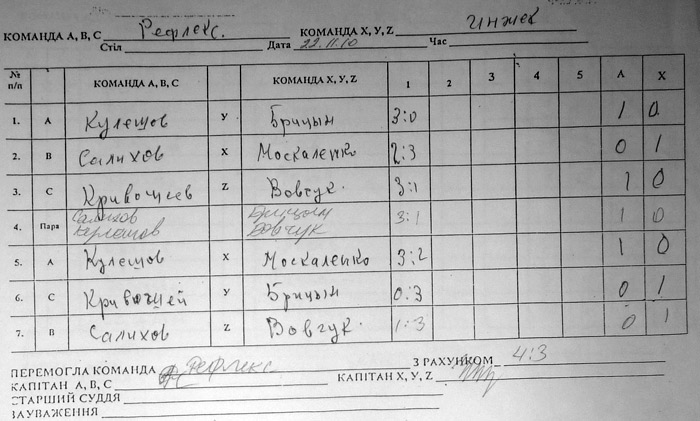 КОМАНДА А, В, С Рефлекс. КОМАНДА X, У, Z Инжек
Стіл Дата 22.11.10 Час
№ п/п КОМАНДА А, В, С КОМАНДА X, У, Z 1 2 3 4 5 А X
1. А Кулешов У Брицын 3:0 1 0
2. В Салихов X Москаленко 2:3 0 1
3. С Кривошеев Z Вовчук. 3:1 1 0
4. Пара Салихов Кулешов Брицын Вовчук 3:1 1 0
5. А Кулешов X Москаленко 3:2 1 0
6. С У Брицын 0:3 0 1
7. В Салихов Z Вовчук. 1:3 0 1
ПЕРЕМОГЛА КОМАНДА Рефлекс З РАХУНКОМ 4:3
КАПІТАН А, В, С КАПІТАН X, У, Z
СТАРШИЙ СУДДЯ
ЗАУВАЖЕННЯ